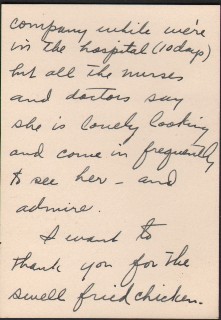 company while we're
in the hospital (10 days)
but all the nurses
and doctors say
she is lovely looking
and come in frequently
to see her - and
admire.
I want to
thank you for the
swell fried chicken.